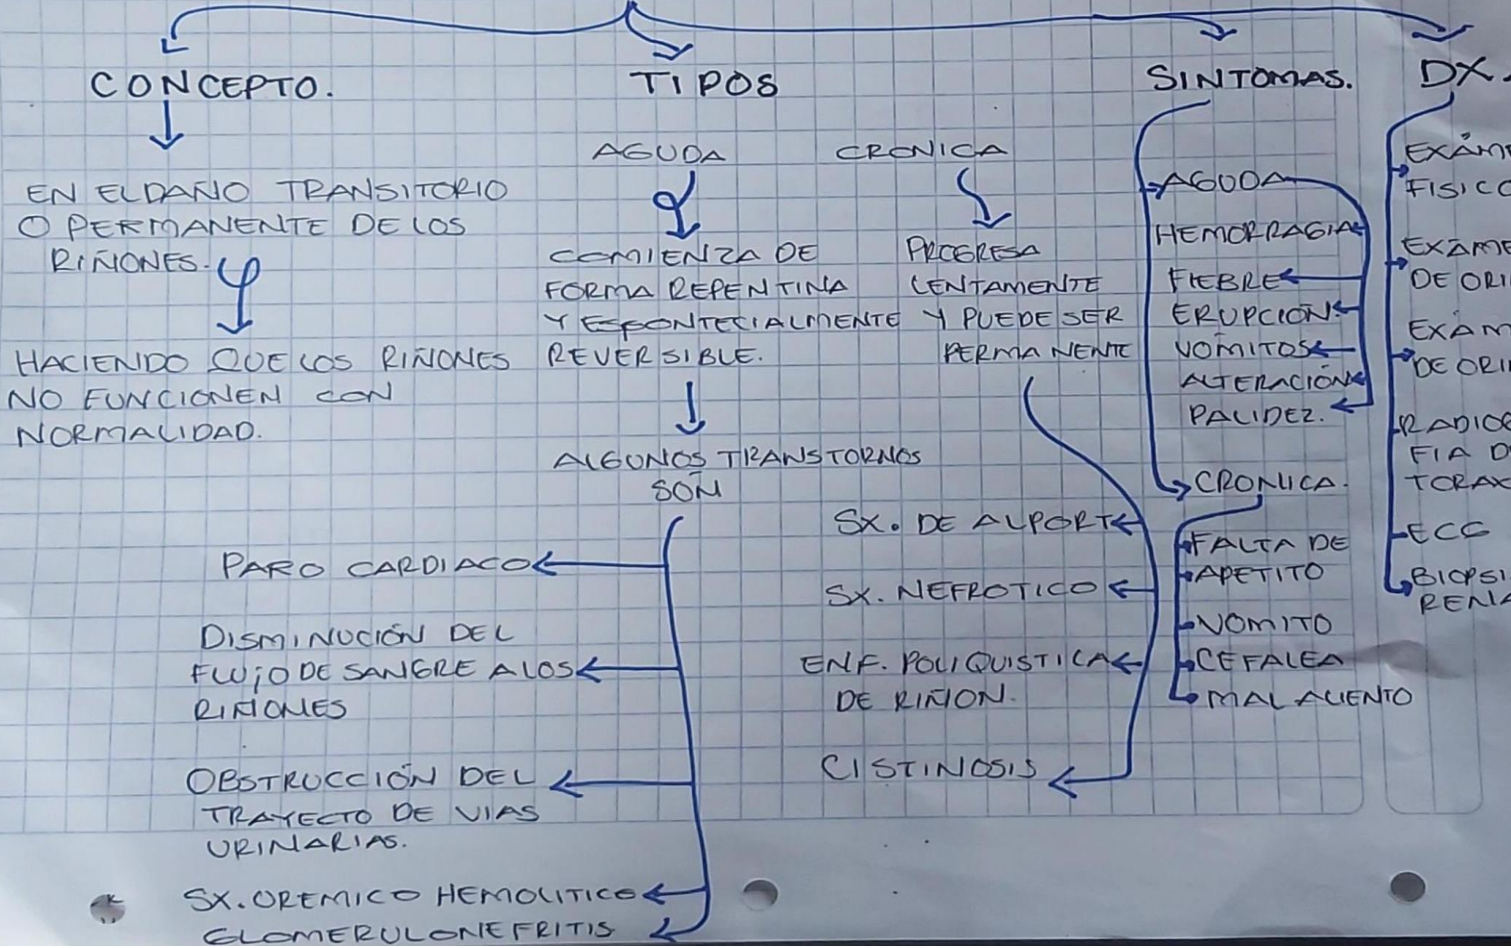 CONCEPTO.
EN EL DAÑO TRANSITORIO
O PERMANENTE DE LOS
RIÑONES.
HACIENDO QUE LOS RIÑONES
NO FUNCIONEN CON
NORMALIDAD.
TIPOS
AGUDA
COMIENZA DE
FORMA REPENTINA
Y ESPONTECIALMENTE
REVERSIBLE.
ALGUNOS TRANSTORNOS
SON
PARO CARDIACO
DISMINUCIÓN DEL
FLUJO DE SANGRE A LOS
RIÑONES
OBSTRUCCIÓN DEL
TRAYECTO DE VIAS
URINARIAS.
SX. UREMICO HEMOLITICO
GLOMERULONEFRITIS
CRONICA
PROGRESA
LENTAMENTE
Y PUEDE SER
PERMANENTE
SX. DE ALPORT
SX. NEFROTICO
ENF. POLIQUISTICA
DE RIÑON.
CISTINOSIS
SINTOMAS.
AGUDA
HEMORRAGIA
FIEBRE
ERUPCIÓN
VÓMITOS
ALTERACIÓN
PALIDEZ.
CRONICA.
FALTA DE
APETITO
VOMITO
CEFALEA
MAL ALIENTO
DX.
EXÁM
FISICO
EXÁME
DE ORI
EXÁM
DE ORI
RADIOG
FIA D
TORAX
ECG
BIOPSI
RENA